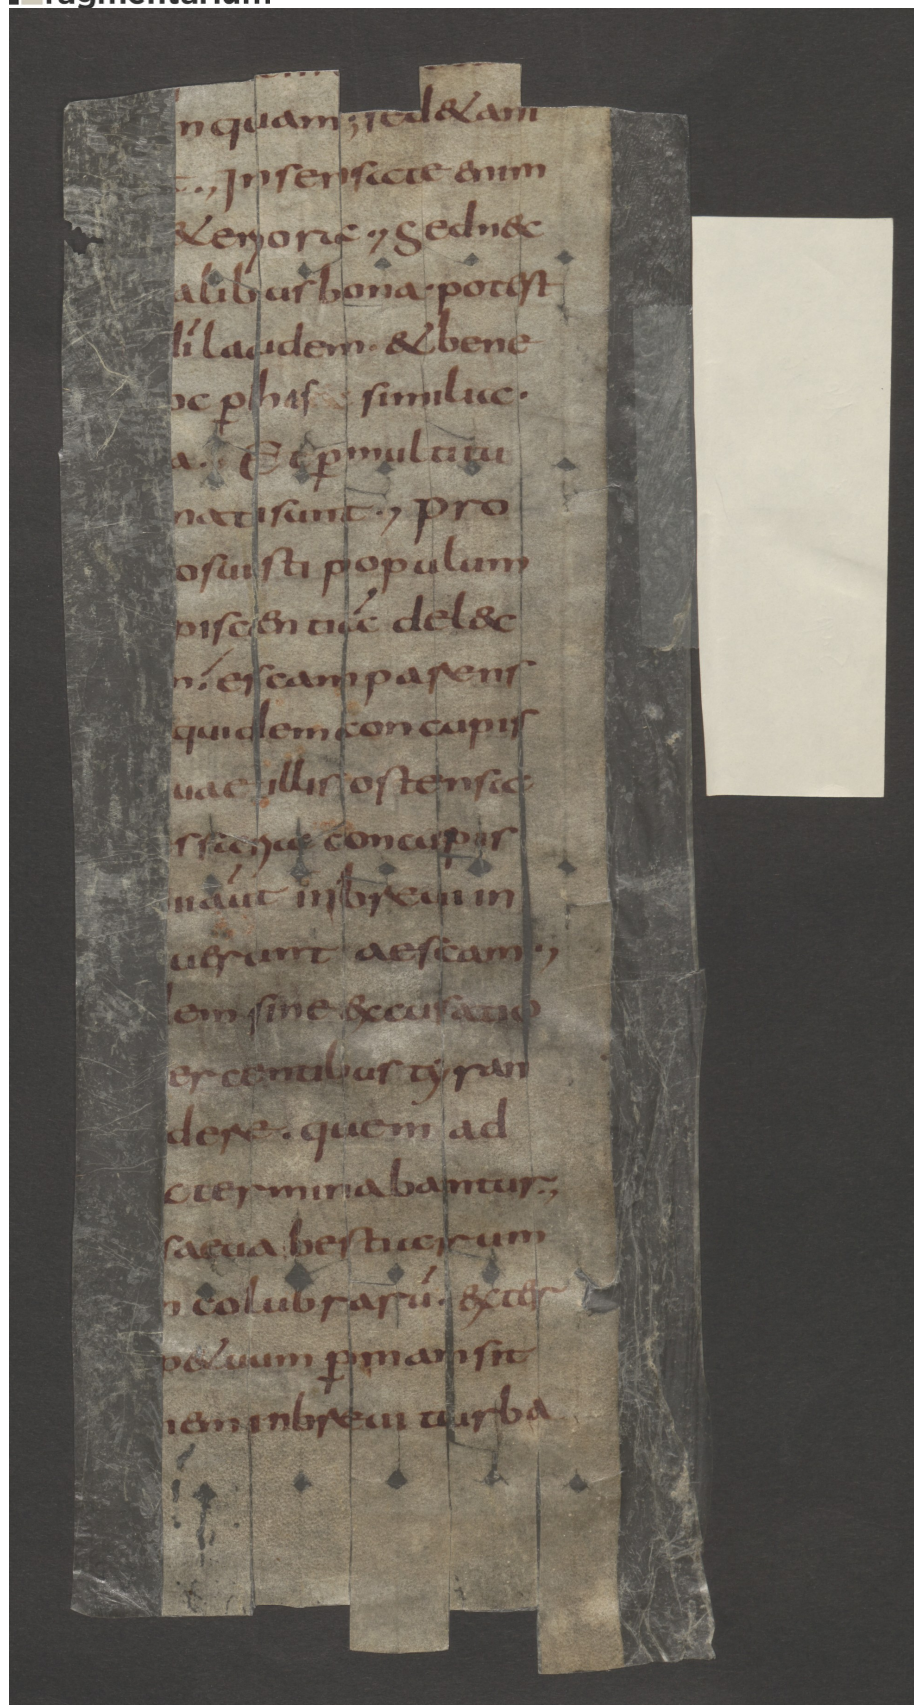 n quam; sed & ani
t., Insensatae enim
& eriorac., Sed nec
alibus bona. potest
di laudem. & bene
oc p his similac.
a., Et p multitu
nati sunt., Pro
osuisti populum
piscentiae delec
m. escam parens
quidem concupis
uae illis ostensae
ssaria concupis
aut in breui in
uerunt aescam.,
em sine excusatio
ercentibus tyran
dere. quem ad
oterminabantur.,
saeua bestiarum
n colubrarū. exter
p&uum pmansit
nem in breui turba